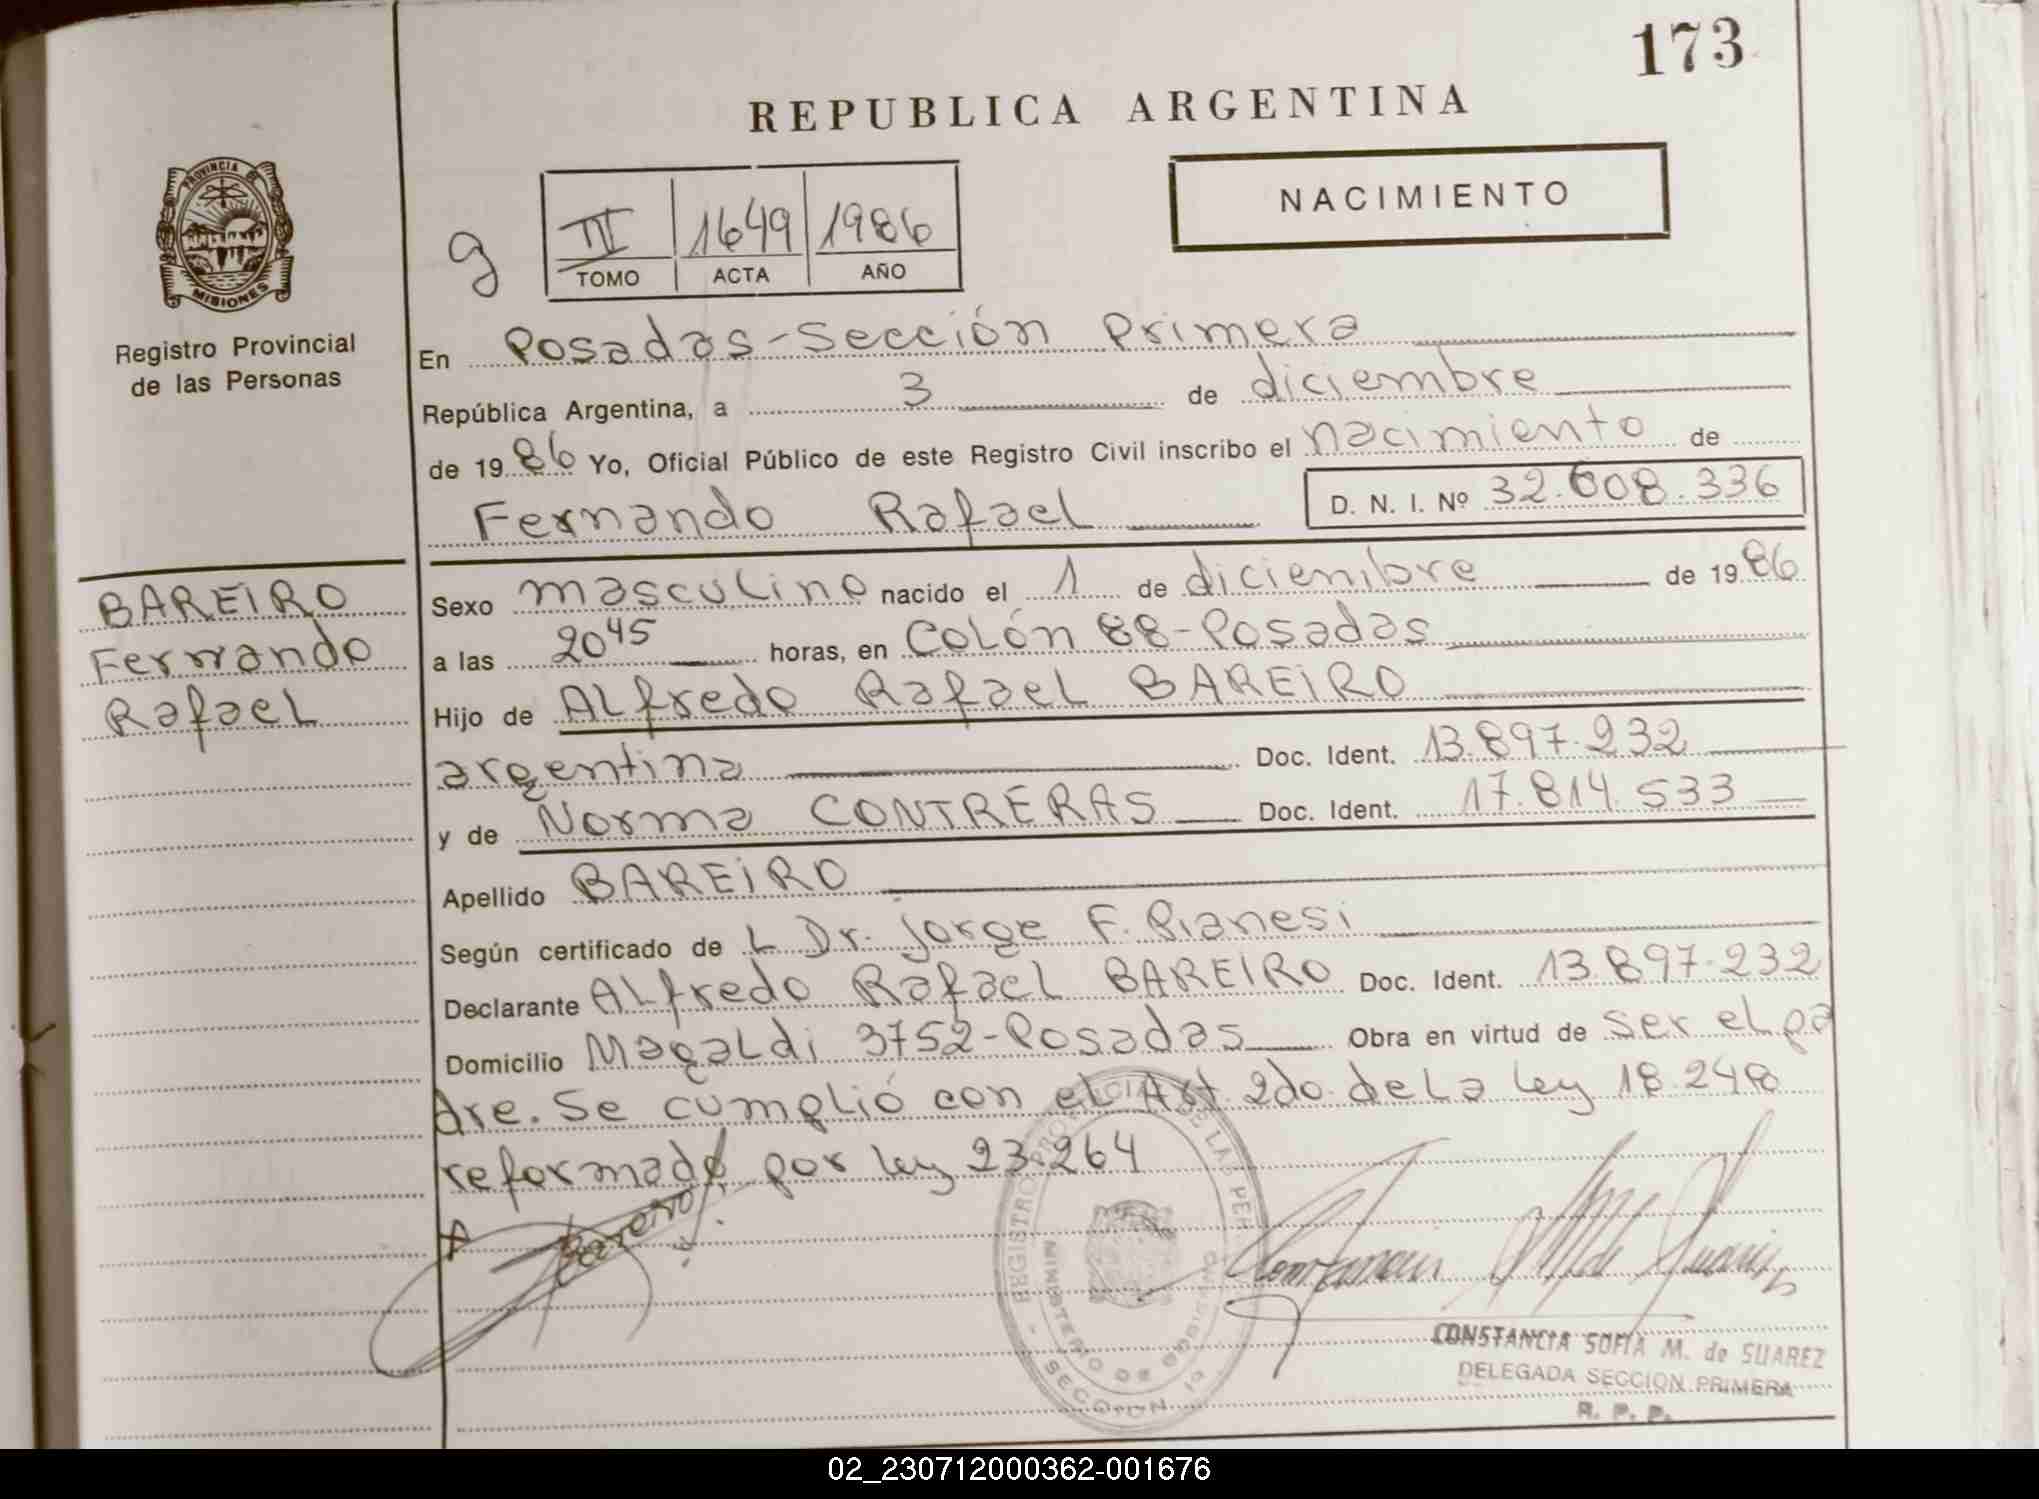 173
REPUBLICA ARGENTINA
PROVINCIA DE
MISIONES
NACIMIENTO
g
III 1649 1986
TOMO ACTA AÑO
Registro Provincial
de las Personas
En Posadas-Sección Primera
República Argentina, a 3 de diciembre
de 1986 Yo, Oficial Público de este Registro Civil inscribo el nacimiento de
Fernando Rafael D. N. I. Nº 32.608.336
BAREIRO
Fernando
Rafael
Sexo masculino nacido el 1 de diciembre de 1986
a las 20 45 horas, en Colón 88-Posadas
Hijo de Alfredo Rafael BAREIRO
argentina Doc. Ident. 13.897.232
y de Norma CONTRERAS Doc. Ident. 17.814.533
Apellido BAREIRO
Según certificado de L Dr. Jorge F. Pianesi
Declarante Alfredo Rafael BAREIRO Doc. Ident. 13.897.232
Domicilio Magaldi 3752-Posadas Obra en virtud de ser el pa
dre. Se cumplió con el Art. 2do. de la ley 18.248
reformado por ley 23.264
Bareiro
REGISTRO PROVINCIAL DE LAS PER.
MINISTERIO DE GOBIERNO
SECCION 1ª
CONSTANCIA SOFIA M. de SUAREZ
DELEGADA SECCION PRIMERA
R. P. P.
02_230712000362-001676